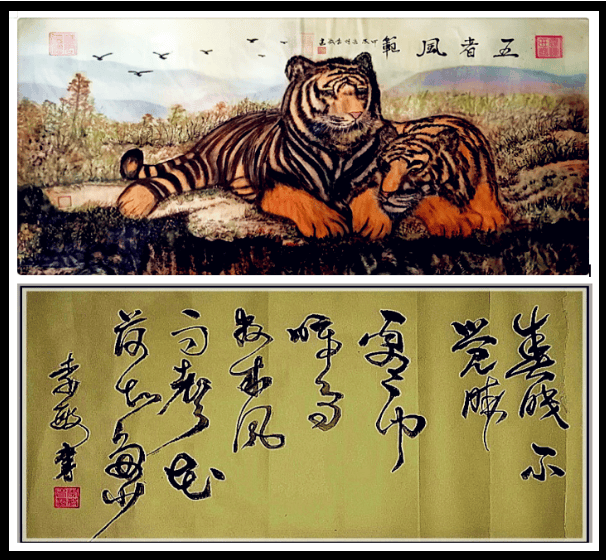 五者風範
春眠不
覺曉
處々聞
啼鳥
夜来風
雨聲花
落知多少
李敏書